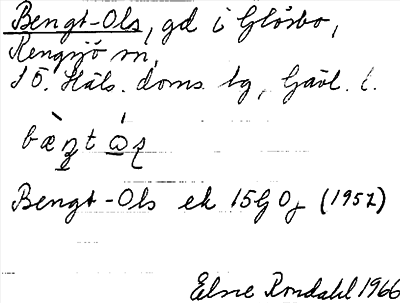 Bengt-Ols, gd i Glösbo,
Rengsjö sn,
SÖ. Häls. doms. tg, Gävl. l.
Bengt-Ols ek 15G Oj (1957)
Elsie Rondahl 1966